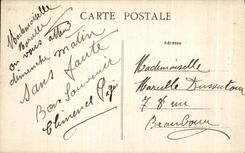 CARTE POSTALE
Mademoiselle
Marcelle
on vous attend
dimanche matin
sans faute
Bon Souvenir
Clemence
Adresse
Mademoiselle
Marcelle Dussutour
7 rue
Beaubourg